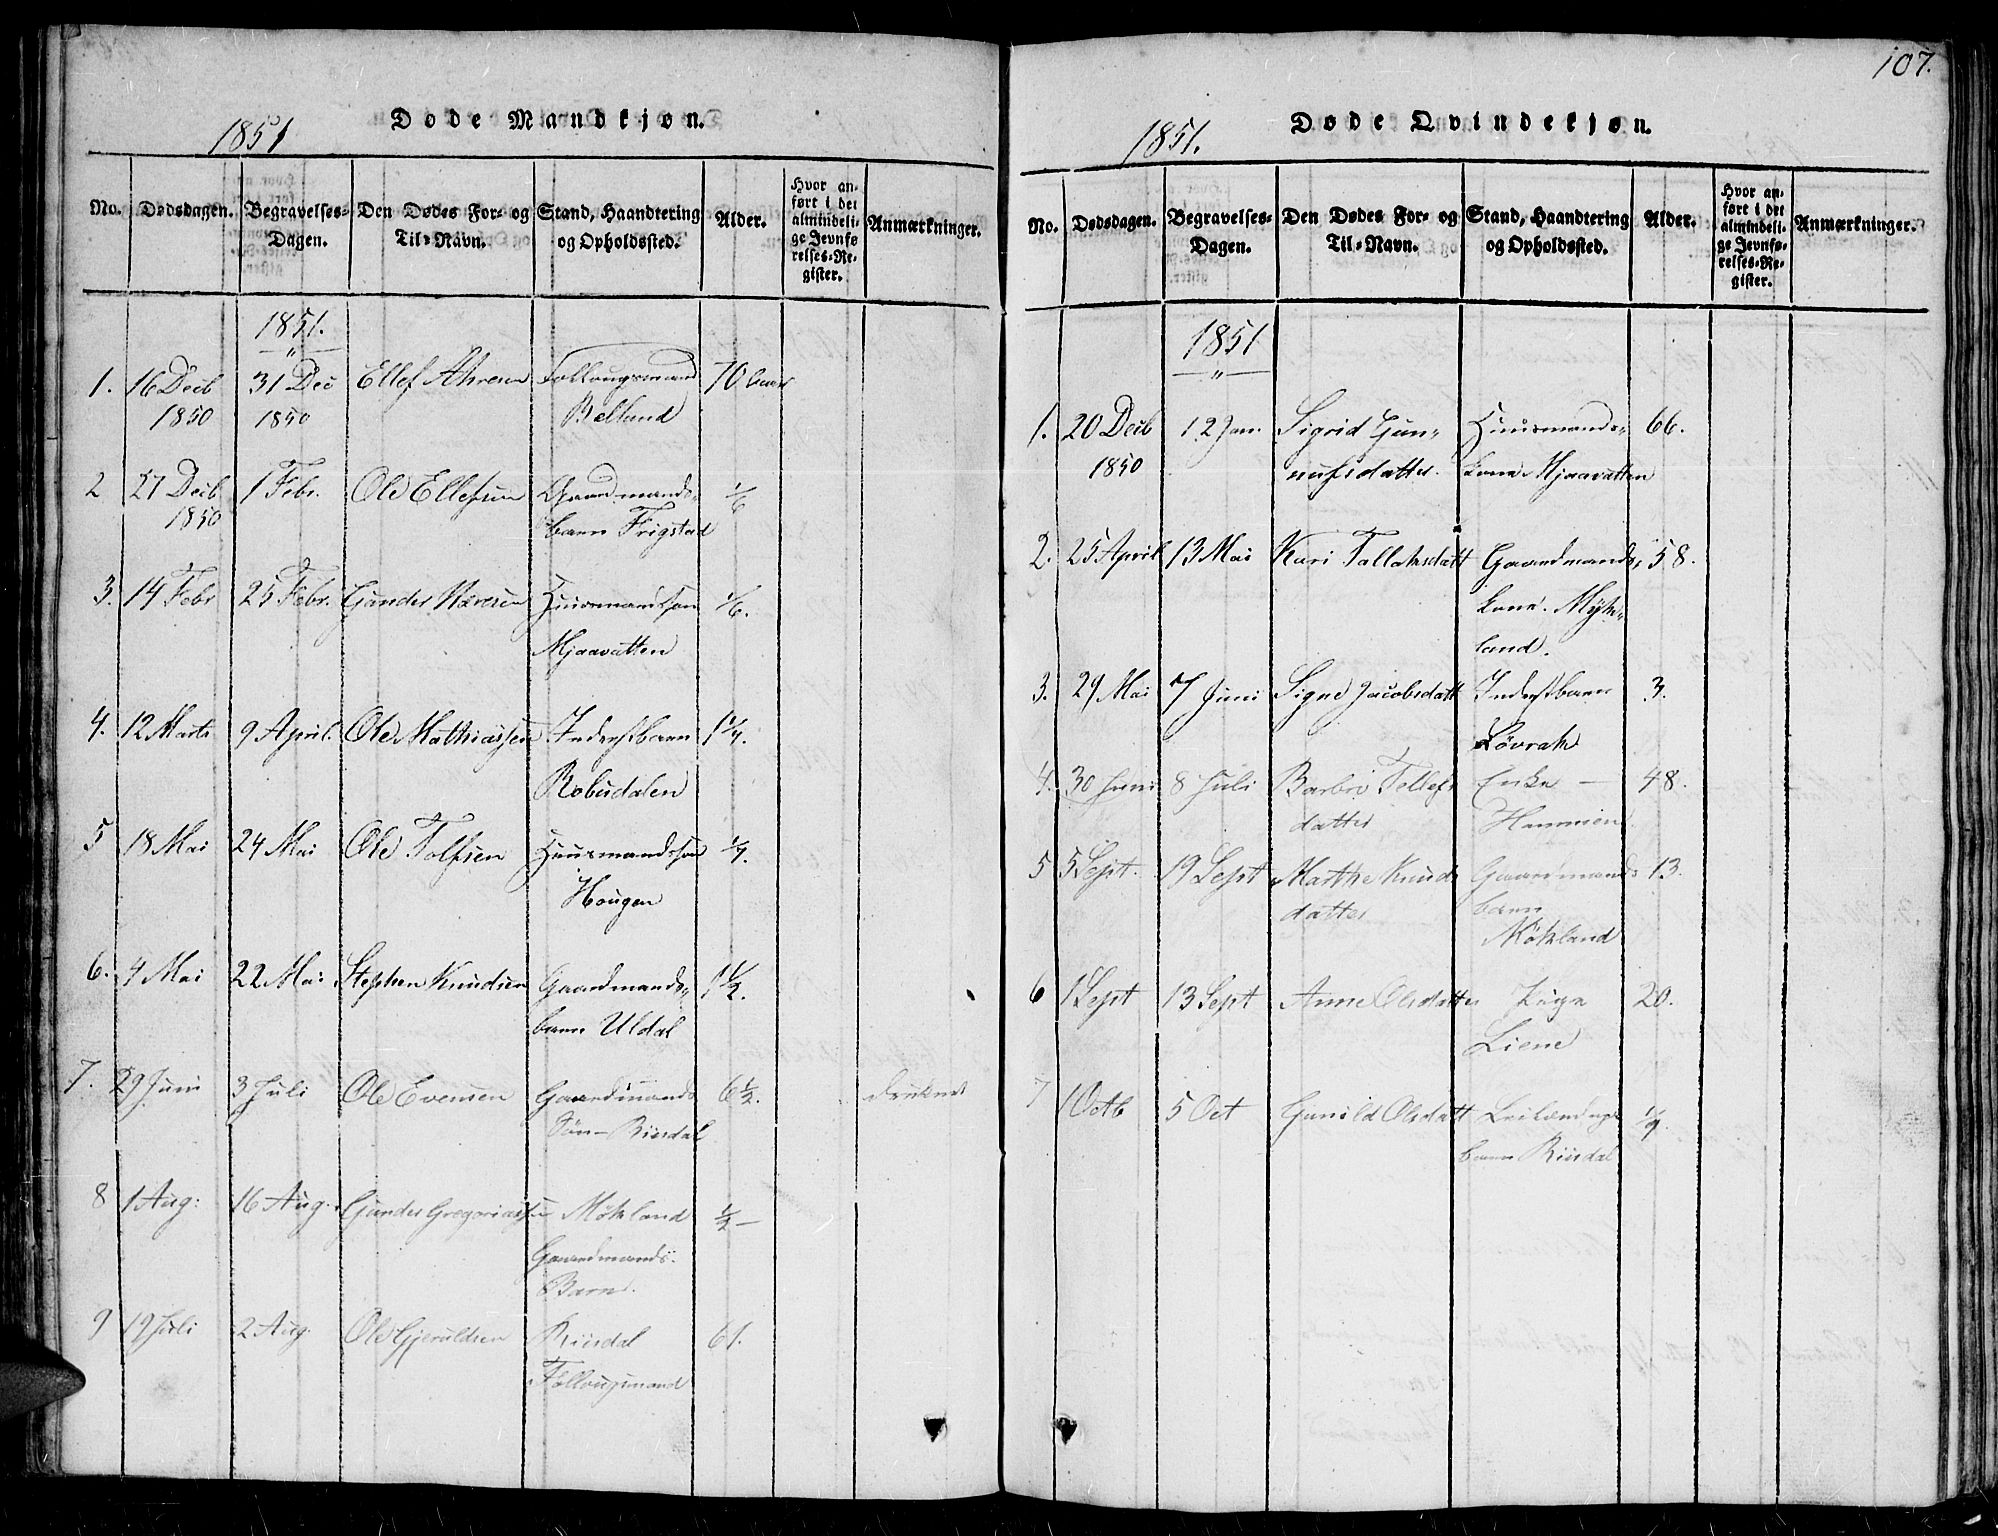 107.
1851
Døde Mandkjøn.
No.
Dødsdagen.
Begravelses-
Dagen.
Den Dødes For- og
Til-Navn.
Stand, Haandtering
og Opholdssted.
Alder.
Hvor an-
ført i det
almindeli-
ge Jevnfø
relses-Re-
gister.
Anmærkninger.
1851.
1. 16 Decb 31 Dec Ellef Ahresen Follougsmand 70 aar
1850 1850 Belland
2 27 Decb 1 Febr. Ole Ellefsen Gaardmands- 1/6
1850 barn Frigstad
3. 14 Febr 25 Febr. Gunder Næresen Huusmandssøn 1/6.
Mjaavatten
4. 12 Marts 9 April. Ole Mathiassen Inderstbarn 1 1/4.
Robudalen
5 18 Mai 24 Mai Ole Tolfsen Huusmandssøn 1/4.
Hougen
6. 4 Mai 22 Mai Stephen Knudsen Gaardmands- 1 1/2.
barn Uldal
7. 29 Juni 3 Juli Ole Evensen Gaardmands 6 1/2. druknet
Søn - Riisdal
8 1 Aug: 16 Aug. Gunder Gregoriassen Mökland 1/2 -
Gaardmands-
Barn.
9 19 Juli 2 Aug. Ole Gjeruldsen Riisdal 61.
Follougsmand
1851.
Døde Qvindekjøn.
No.
Dødsdagen.
Begravelses-
Dagen.
Den Dødes For- og
Til-Navn.
Stand, Haandtering
og Opholdssted.
Alder.
Hvor an-
ført i det
almindeli-
ge Jevnfø-
relses-Re-
gister.
Anmærkninger.
1851
1. 20 Decb 12 Jan. Sigrid Gun- Huusmands- 66.
1850 nufsdatter. kone Mjaavatten
2. 25 April 13 Mai Kari Tallaksdatt Gaardmands- 58.
kone. Mykc-
land.
3. 29 Mai 7 Juni Signe Jacobsdatt Inderstbarn 3.
Lövrak
4. 30 Juni 8 Juli Barbro Tellefs Enke - 48.
datter Hammien
5 5 Sept. 19 Sept Marthe Knuds Gaardmands 13.
datter barn
Mökland
6 1 Sept 13 Sept Anne Olsdatter Pige 20.
Liene
7 1 Octb 5 Oct Gunild Olsdatt Leilændings 1/4.
barn Riisdal